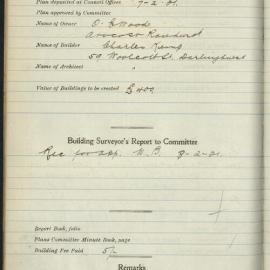 Plan deposited at Council Offices 7-2-21.
Plan approved by Committee
Name of Owner O. E. Wood
Randwick
Name of Builder Charles Kemp
59 Woolcott St. Darlinghurst
Name of Architect
Value of Buildings to be erected £400
Building Surveyor's Report to Committee
Rec for app. W.B. 8-2-21
Report Book, folio
Plans Committee Minute Book, page
Building Fee Paid 5/-
Remarks